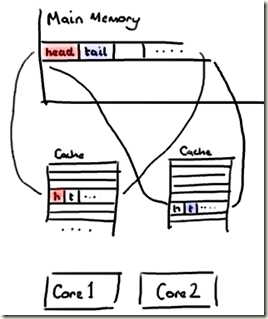 Main Memory
head tail ....
Cache
Cache
h t ...
h t ....
.....
Core 1
Core 2